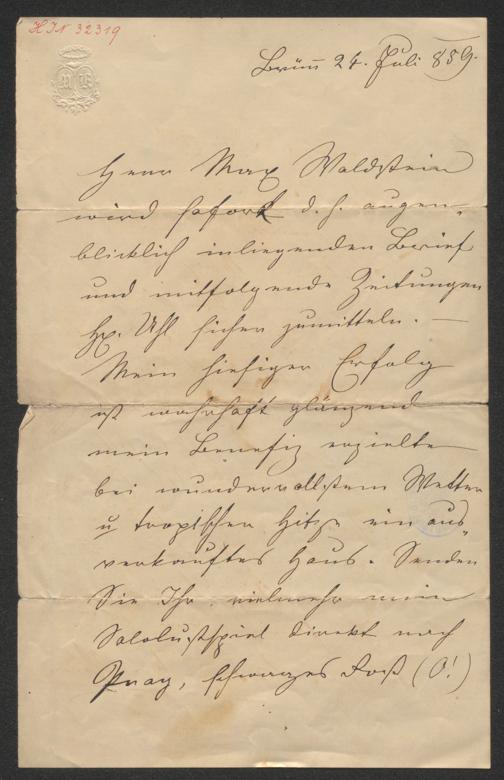 HIN 32319
Brünn 24. Juli 859.
Herr Max Waldstein
wird sofort d. h. augen-
blicklich inliegenden Brief
und mitfolgende Zeitungen
H. Uhl sicher zumitteln. —
Mein hiesiger Erfolg
ist wahrhaft glänzend
mein Benefiz erzielte
bei wundervollstem Wetter
u tropischer Hitze ein aus-
verkauftes Haus. Senden
Sie Ihr vielmehr mein
Sololustspiel direkt nach
Prag, schwarzes Roß (O!)